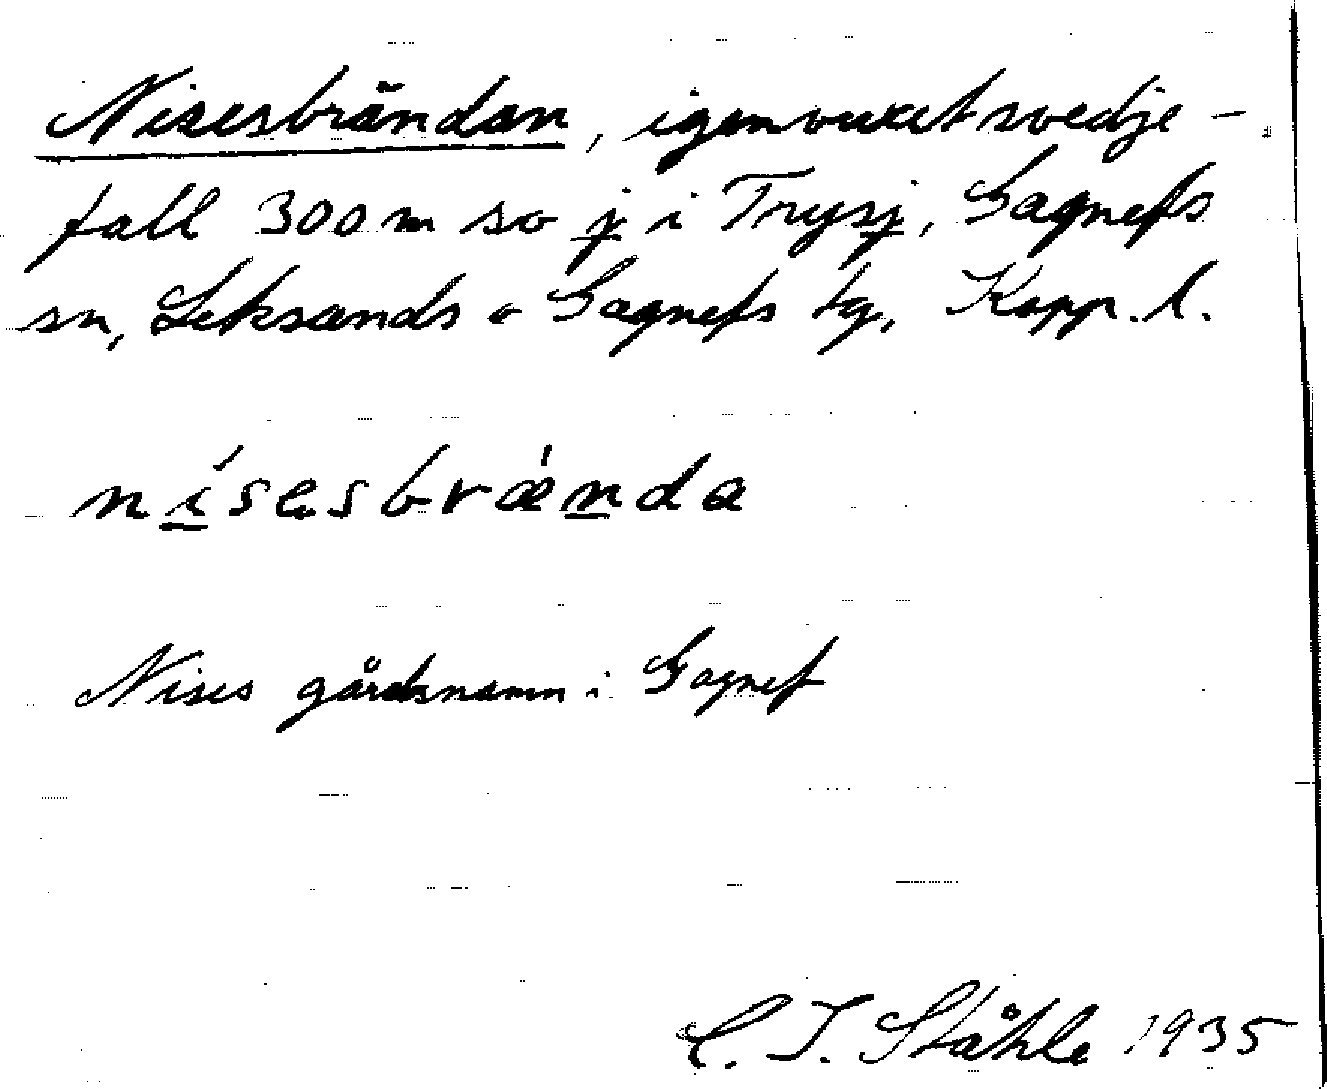 Nisesbrändan, igenvuxet svedje-
fall 300 m so j i Trysj, Gagnefs
sn, Leksands o Gagnefs tg, Kopp. l.
nísesbrǽnda
Nises gårdsnamn i Gagnef
C. I. Ståhle 1935